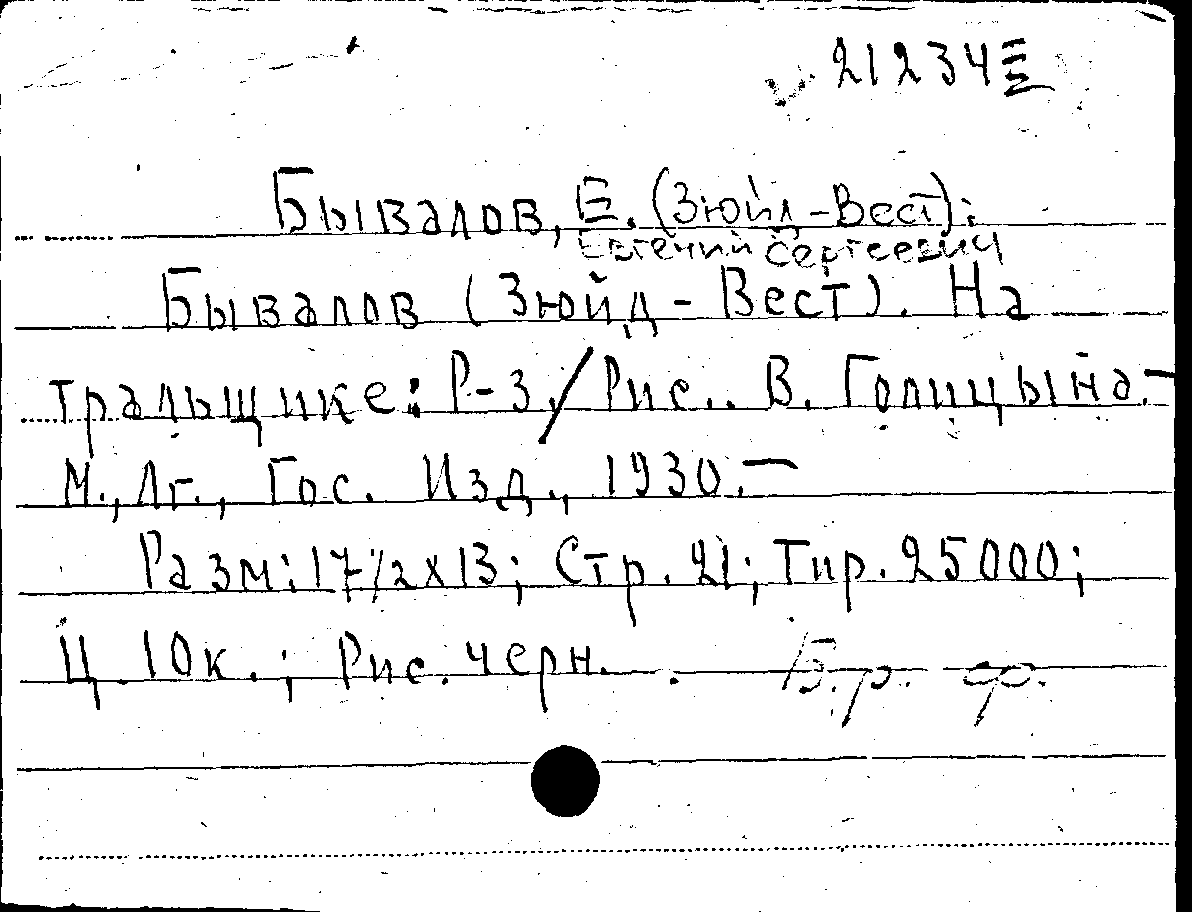 21234
Бывалов, Е. (Зюйд-Вест):
Евгений Сергеевич
Бывалов (Зюйд-Вест). На
тральщике: Р-3. / Рис.. В. Голицына.-
М., Лг., Гос. Изд., 1930.-
Разм: 17 1/2 x 13; Стр. 21; Тир. 25000;
Ц. 10к.; Рис. черн. . Б.р. ср.